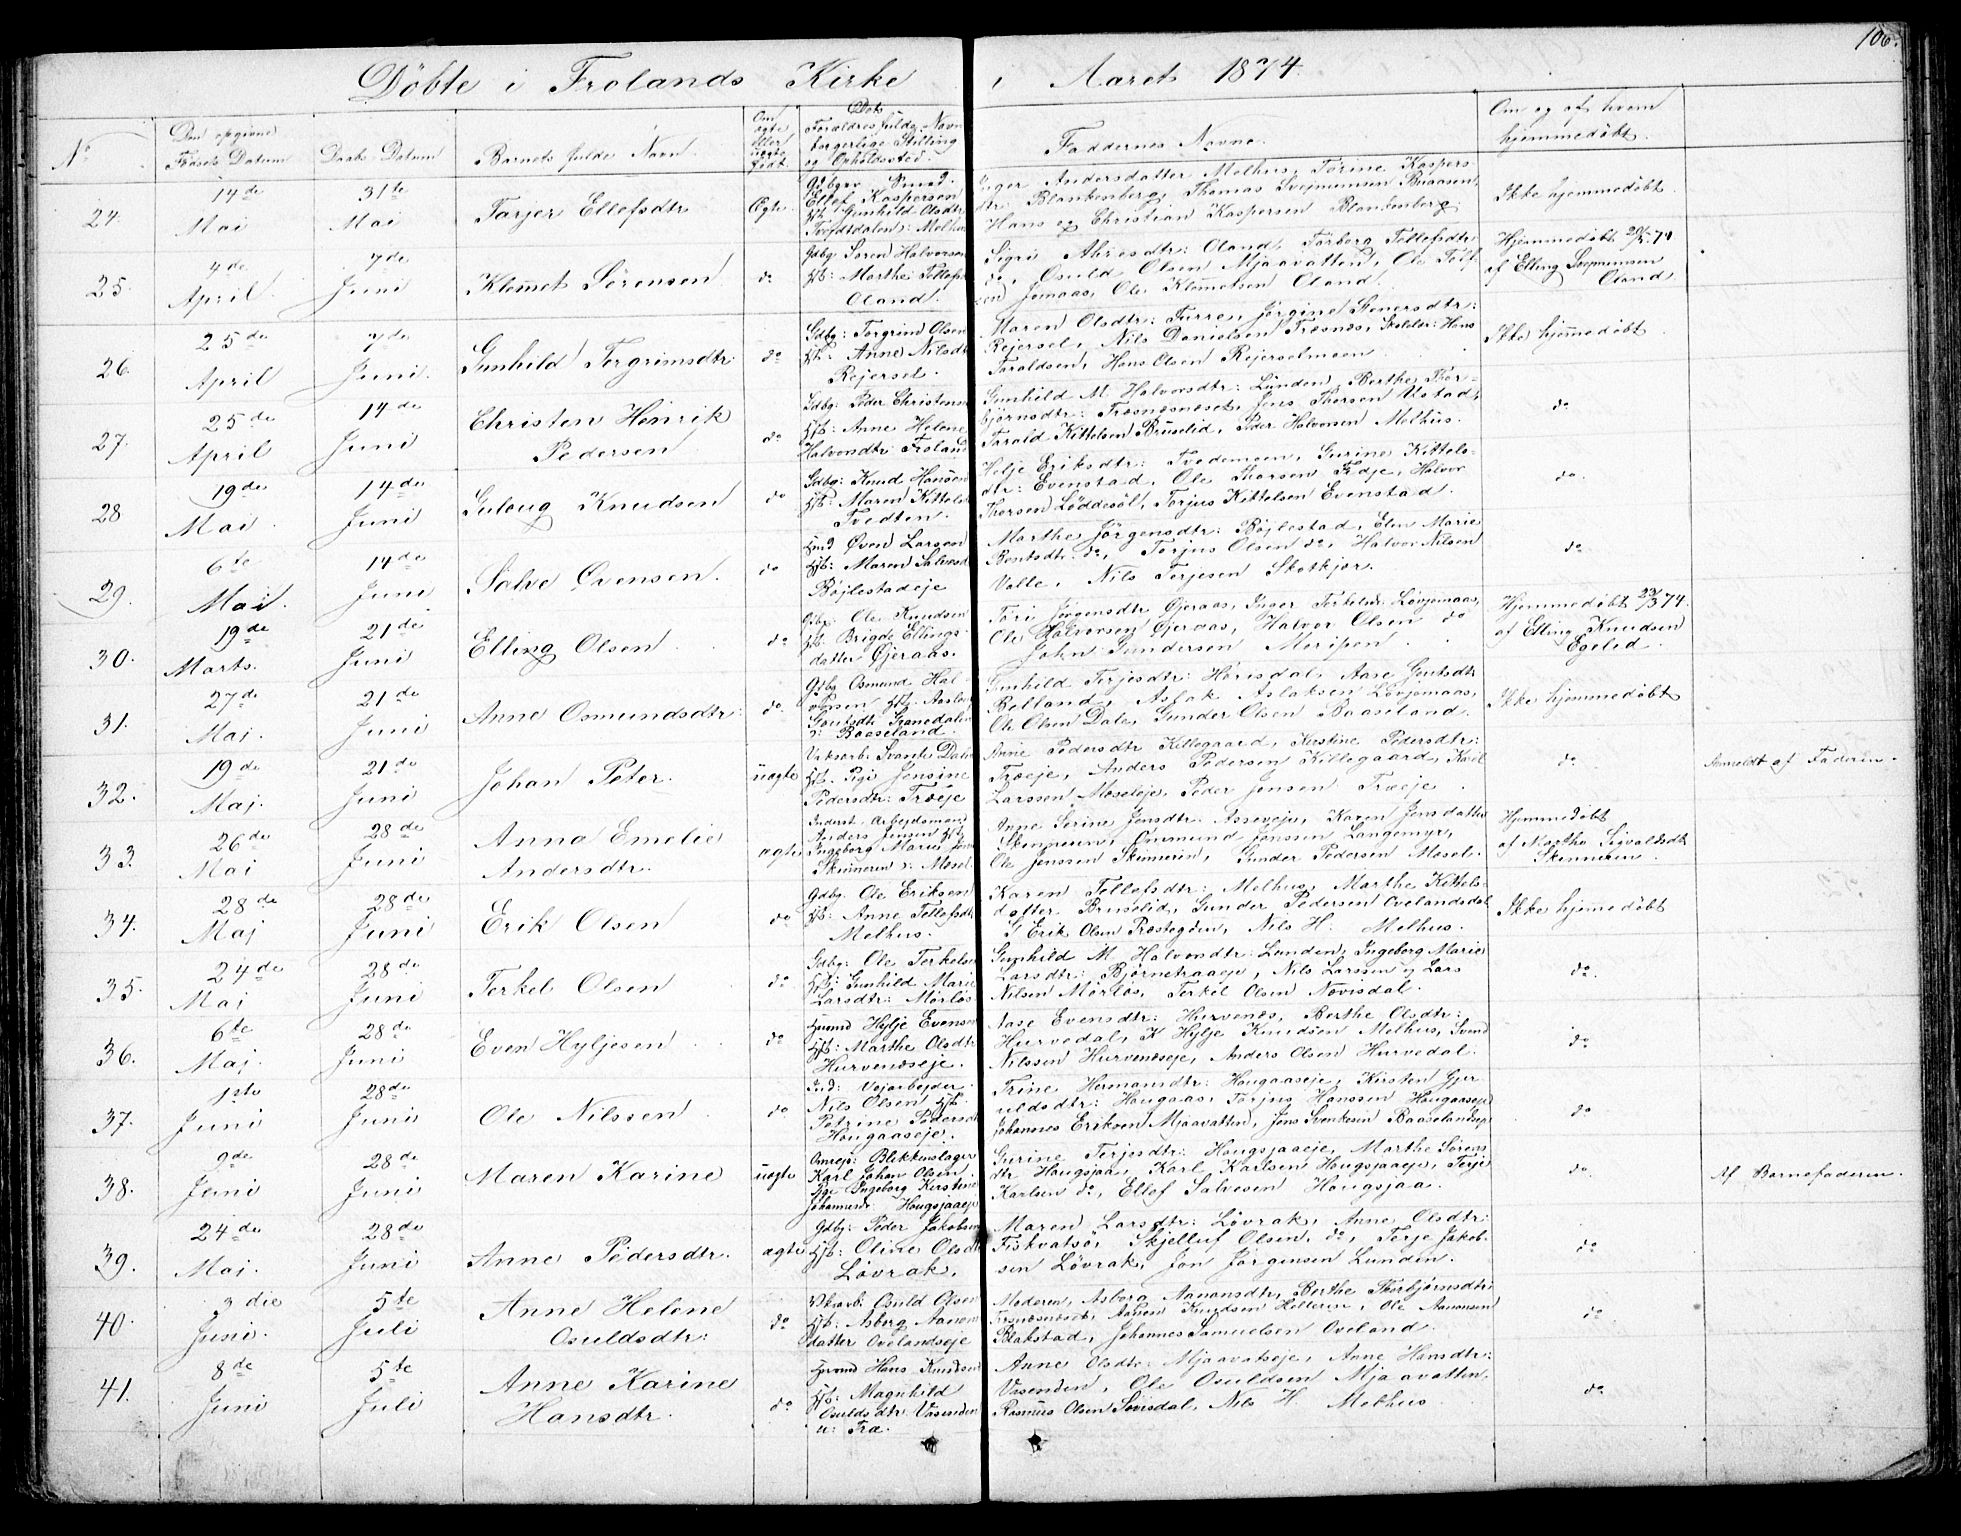 106.
Döbte i Frolands Kirke i Aaret 1874.
No
Den opgivne Födsels Datum
Daabs Datum
Barnets fulde Navn.
Om ægte eller uægte födt.
Det
Forældres fuldg. Navn
borgerlige Stilling
og Opholdssted.
Faddernes Navne.
Om og af hvem
hjemmedöbt.
24.
14de Mai
31te Mai
Tarjer Ellefsdtr
Ægte.
Gdbgr Smed.
Ellef Kaspersen
Gunhild Olsdtr
Inger Andersdatter Melhus, Torine Kaspers
dtr: Blankenberg, Thomas Svejnunsen Buaasen,
Hans og Christian Kaspersen Blankenberg.
Ikke hjemmedöbt.
25.
4de April
7de Juni
Klemet Sörensen
do
Gdbg: Sören Halvorsen
Hb: Marthe Tellefsd
Oland.
Sigri Ahresdtr: Oland, Torborg Tellefsdtr
do, Osuld Olsen Mjaavatten, Ole Tellf
sen Jomaas, Ole Klemetsen Oland.
Hjemmedöbt
af Elling Svejnunsen
Oland
26.
25de April
7de Juni.
Gunhild Torgrimsdtr:
do
Gdbg: Torgrim Olsen
Hb: Anne Nilsdtr
Rejersel.
Maren Olsdtr: Furre, Jörgine Stenersdtr:
Rejersel, Nils Danielsen Træsnes, Skolelr: Hans
Taraldsen, Hans Olsen Rejerselmoen.
Ikke hjemmedöbt.
27.
25de April
14de Juni
Christen Henrik
Pedersen
do
Gdbg: Peder Christensen
Hb: Anne Helene
Halvorsdtr: Froland
Gunhild M. Halvorsdtr: Lunden, Berthe Thor-
björnsdtr: Træsnesneset, Jens Thorsen Ustad,
Tarald Kittelsen Bruselid, Peder Halvorsen Melhus.
do
28
19de Mai.
14de Juni
Gulaug Knudsen
do
Gdbg: Knud Hansen
Hb: Maren Kittels
Tvedten.
Helje Eriksdtr: Tvedemoen, Gurine Kittels-
dtr: Evenstad, Ole Thorsen Fredje, Halvor
Thorsen Löddesöl, Torjus Kittelsen Evenstad.
do.
29.
6te Mai.
14de Juni
Salve Övensen.
do
Hmd Öven Larsen
Hb: Maren Salvesd
Böjlestadeje
Marthe Jörgensdtr: Böjlestad, Elen Marie
Bentsdtr. do, Torjus Olsen do, Halvor Nilsen
Valle, Nils Terjesen Skotkjær.
do
30.
19de Marts.
21de Juni
Elling Olsen
do
Gdbg: Ole Knudsen
Hb: Brigde Ellings-
datter Öjeraas.
Tori Jörgensdtr Öjeraas, Inger Terkelsdr Lövjomaas,
Ole Halvorsen Öjeraas, Halvor Olsen do
John Gundersen Meripen.
Hjemmedöbt 23/3 74.
af Elling Knudsen
Egelid.
31.
27de Maj.
21de Juni
Anne Osmundsdtr:
do.
Gdbg Osmund Hal-
vorsen Hb. Aaslaug
Goutsdtr:
Baaseland.
Gunhild Terjesdtr: Hörisdal, Aase Goutsdtr
Belland, Aslak Aslaksen Lövjomaas,
Ole Olsen Dale, Gunder Olsen Baaseland.
Ikke hjemmedöbt
32.
19de Maj.
21de Juni
Johan Peter.
uægte
Pige Jensine
Pedersdtr: Træeje
Anne Pedersdtr Killegaard, Kirstine Pedersdtr:
Træeje, Anders Pedersen Killegaard, Karl
Larssen Moseleje, Peder Jensen Træeje.
do
Anmeldt af Faderen.
33.
26de Mai
28de Juni
Anna Emelie
Andersdtr.
ægte
Inderst. Arbejdsmand
Anders Jensen Hb
Ingeborg Marie
Skinneren u: Mosel
Anne Serine Jensdtr: Asseveje, Karen Jensdatter
Skinneren, Osmund Jenssen Langemyr,
Ole Jenssen Skinneren, Gunder Pedersen Mosel.
Hjemmedöbt
af Marthe Sigvaldsdtr
Skinneren.
34.
28de Maj
28de Juni
Erik Olsen
do
Gdbg. Ole Eriksen
Hb: Anne Tellefsdtr
Melhus.
Karen Tellefsdtr: Melhus, Marthe Kittels-
datter Bruselid, Gunder Pedersen Ovelandsdal
G Erik Olsen Præstegden, Nils H. Melhus.
Ikke hjemmedöbt
35.
24de Maj
28de Juni
Terkel Olsen
do
Gdbg: Ole Terkelsen
Hb: Gunhild Marie
Larsdtr: Mörlös
Gunhild M Halvorsdtr: Lunden, Ingeborg Marie
Larsdtr: Björnetraaeje, Nils Larssen og Lars
Nilsen Mörlös, Terkel Olsen Novisdal.
do.
36.
6te Maj.
28de Juni
Even Hyljesen
do
Husmd Hylje Evensen
Hb: Marthe Olsdtr
Hurveneseje.
Aase Evensdtr: Hurvenes, Berthe Olsdtr:
Hurvedal, K Hylje Knudsen Melhus, Svend
Nilssen Hurveneseje, Anders Olsen Hurvedal.
do
37.
1ste Juni
28de Juni
Ole Nilssen
do
Ind: Vejarbejder.
Nils Olsen Hb
Petrine Pedersdt
Hougaaseje.
Trine Hermansdtr: Hougaaseje, Kirsten Gjer
uldsdtr: Hougaas, Torjus Hanssen Hougaaseje
Johannes Eriksen Mjaavatten, Jens Svenksen Baaselandseje
do
38.
9de Juni
28de Juni
Maren Karine
uægte
Omrejs: Blikkenslager
Karl Johan Olsen.
Pige Ingeborg Kirstine
Johannesdtr Hougsjaaeje
Gurine Terjesdtr: Hougsjaaeje, Marthe Sörens
dtr Hougsjaa, Karl Karlsen Hougsjaaeje, Terje
Karlsen do, Ellef Salvesen Hougsjaa.
do.
Af Barnefaderen.
39.
24de Maj.
28de Juni
Anne Pedersdtr.
ægte
Gdbg: Peder Jakobsen
Hb: Oline Olsdt
Lövrak.
Maren Larsdtr: Lövrak, Anne Olsdtr:
Fiskvatsö, Skjelluf Olsen, do, Terje Jakob-
sen Lövrak, Jon Jörgensen Lunden.
do
40.
3die Juni.
5te Juli
Anne Helene
Osuldsdtr:
do
Osuld Olsen
Hb: Asborg Aanon
datter Ovelandseje
Moderen, Asborg Aanonsdtr, Berthe Thorbjörnsdtr:
Træsnesneset, Aanen Knudsen Helleren, Ole Aanonsen
Blakstad, Johannes Samuelsen Oveland.
do
41.
8de Juni
5te Juli
Anne Karine
Hansdtr.
do
Husmd Hans Knudsen
Hb: Magnhild
Osuldsdtr Vasenden
u: Træ.
Anne Olsdtr: Mjaavatseje, Anne Hansdtr:
Vasenden, Ole Osuldsen Mjaavatten,
Rasmus Olsen Sörisdal, Nils H. Melhus
do